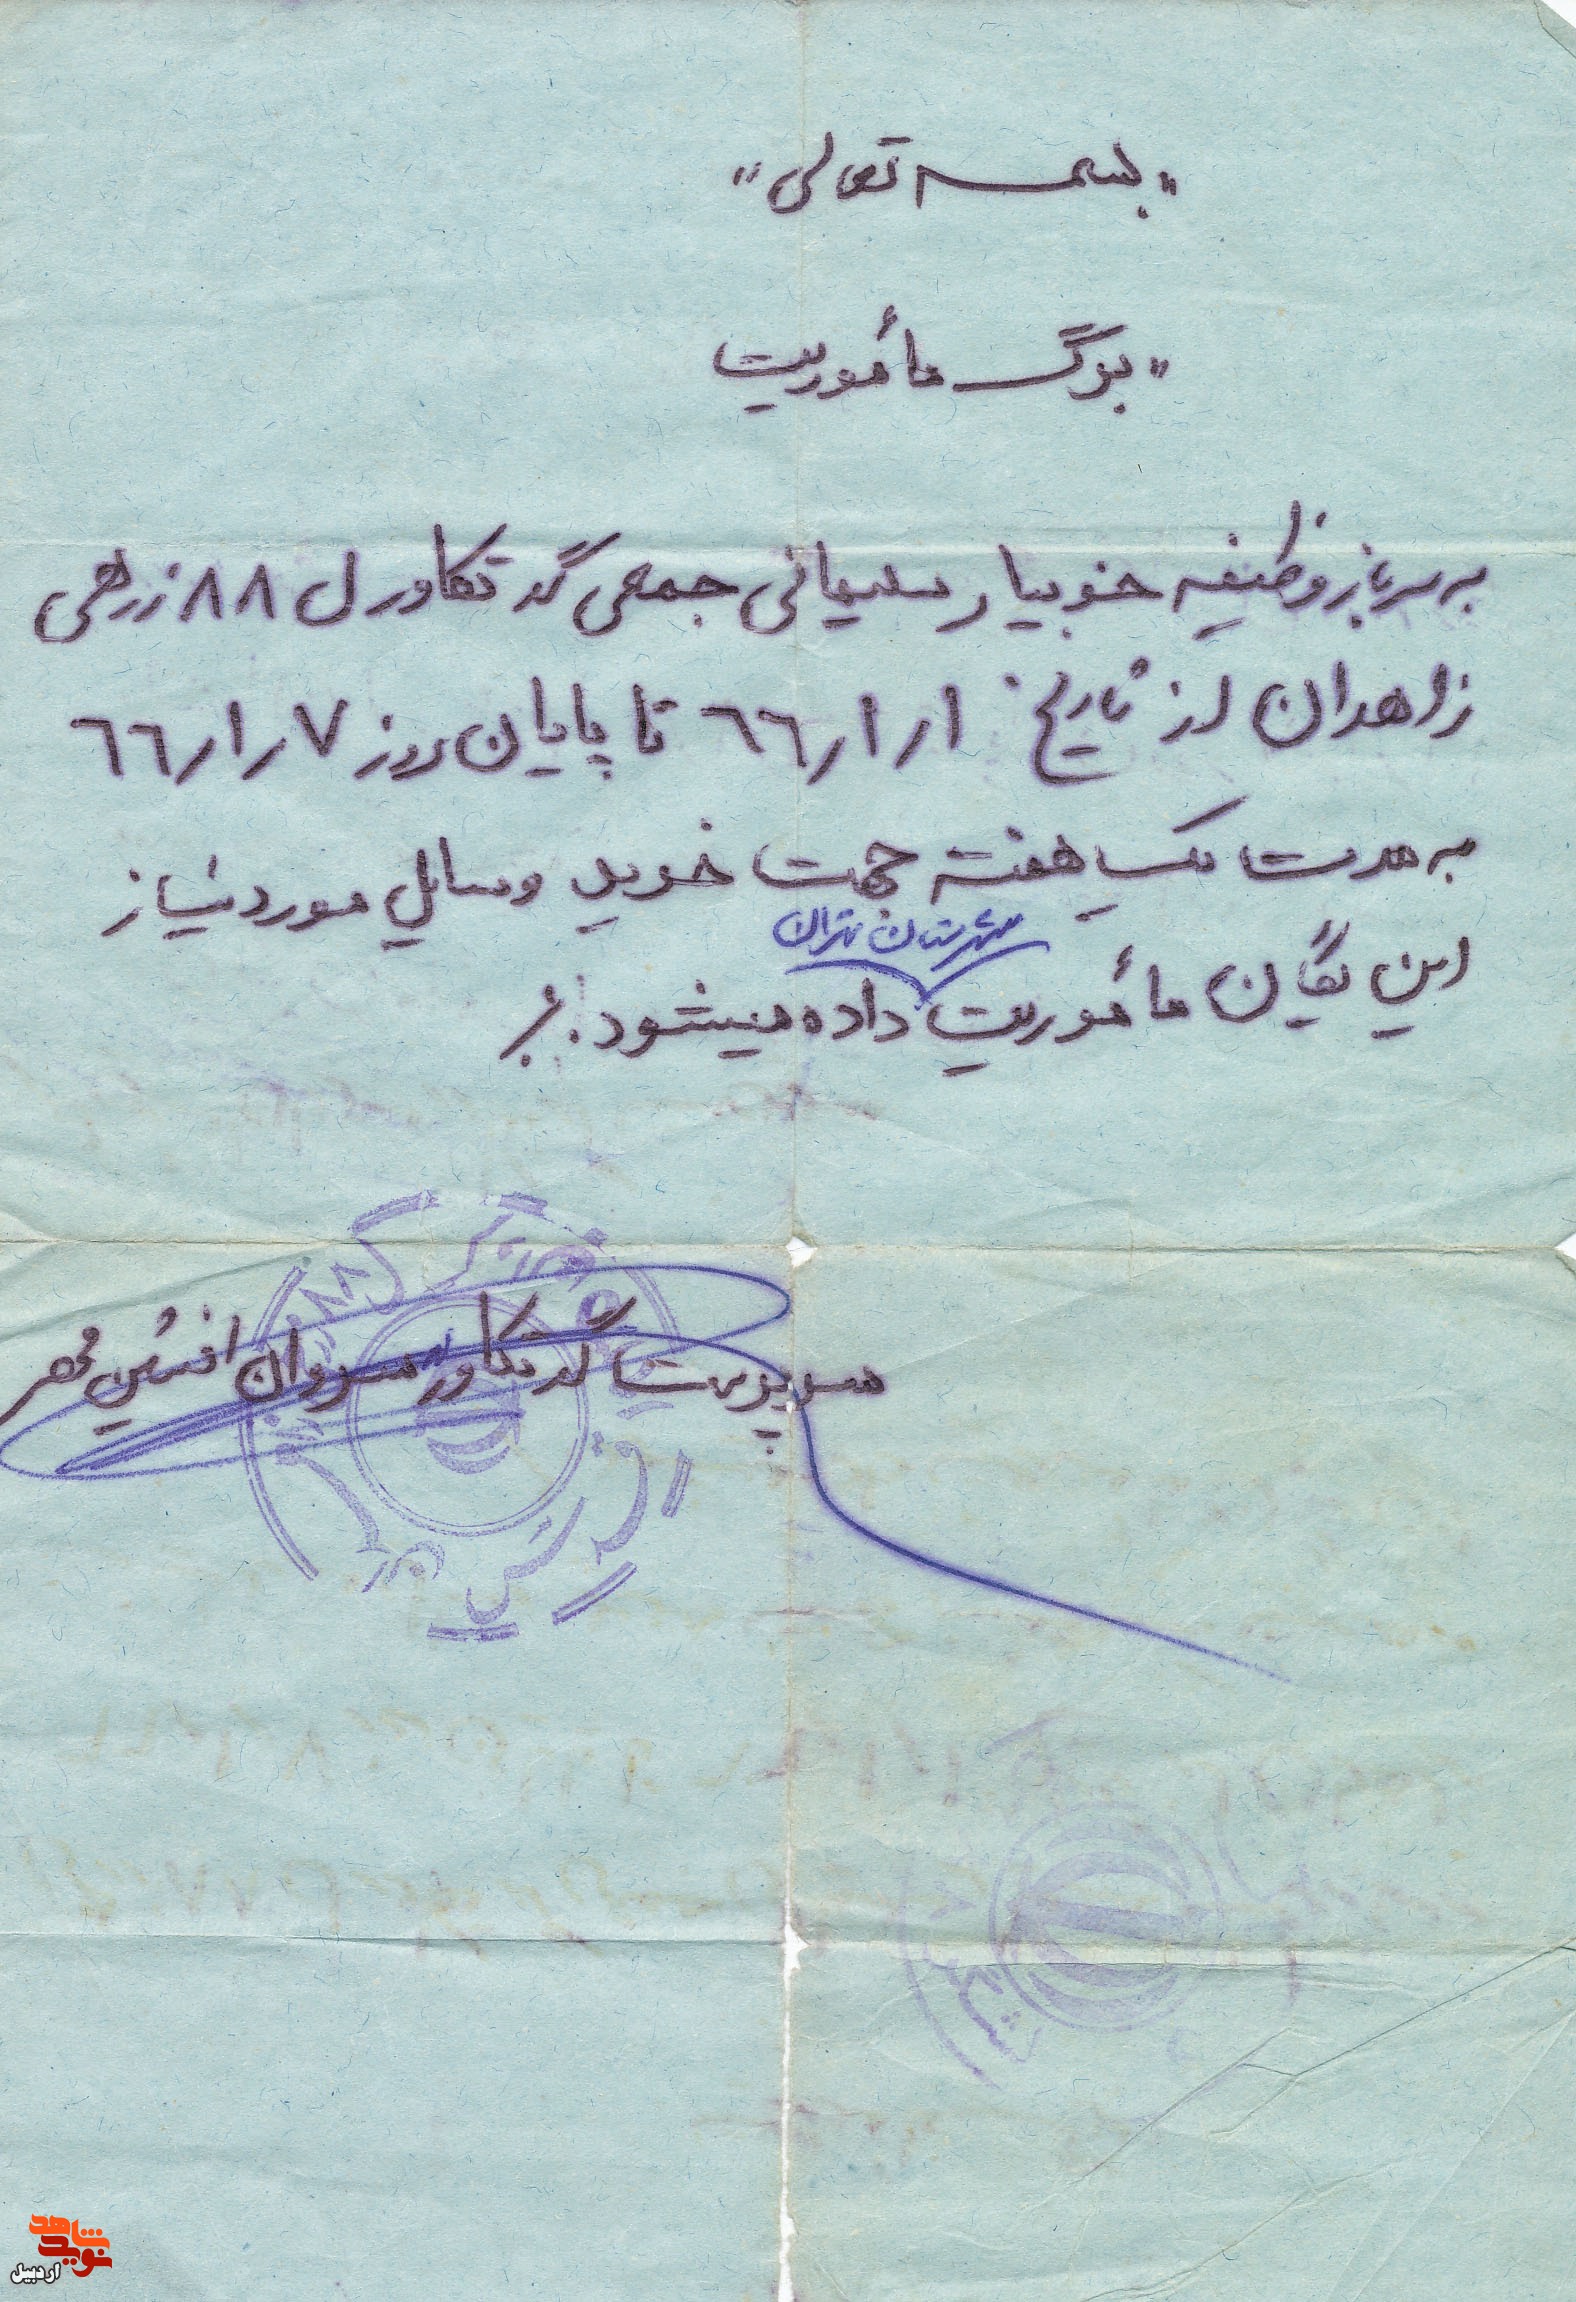 "بسمه تعالی"
"برگ مأموریت
به سرباز وظیفه خوبیار سلیمانی جمعی گد تکاور ل ۸۸ زرهی
زاهدان از تاریخ ۶۶/۱/۱ تا پایان روز ۶۶/۱/۷
به مدت یک هفته جهت خرید وسایل مورد نیاز
شهرستان تهران
این یگان مأموریت داده میشود./.
سرپرست گد تکاور سروان افشین مهر
نوید شاهد
اردبیل